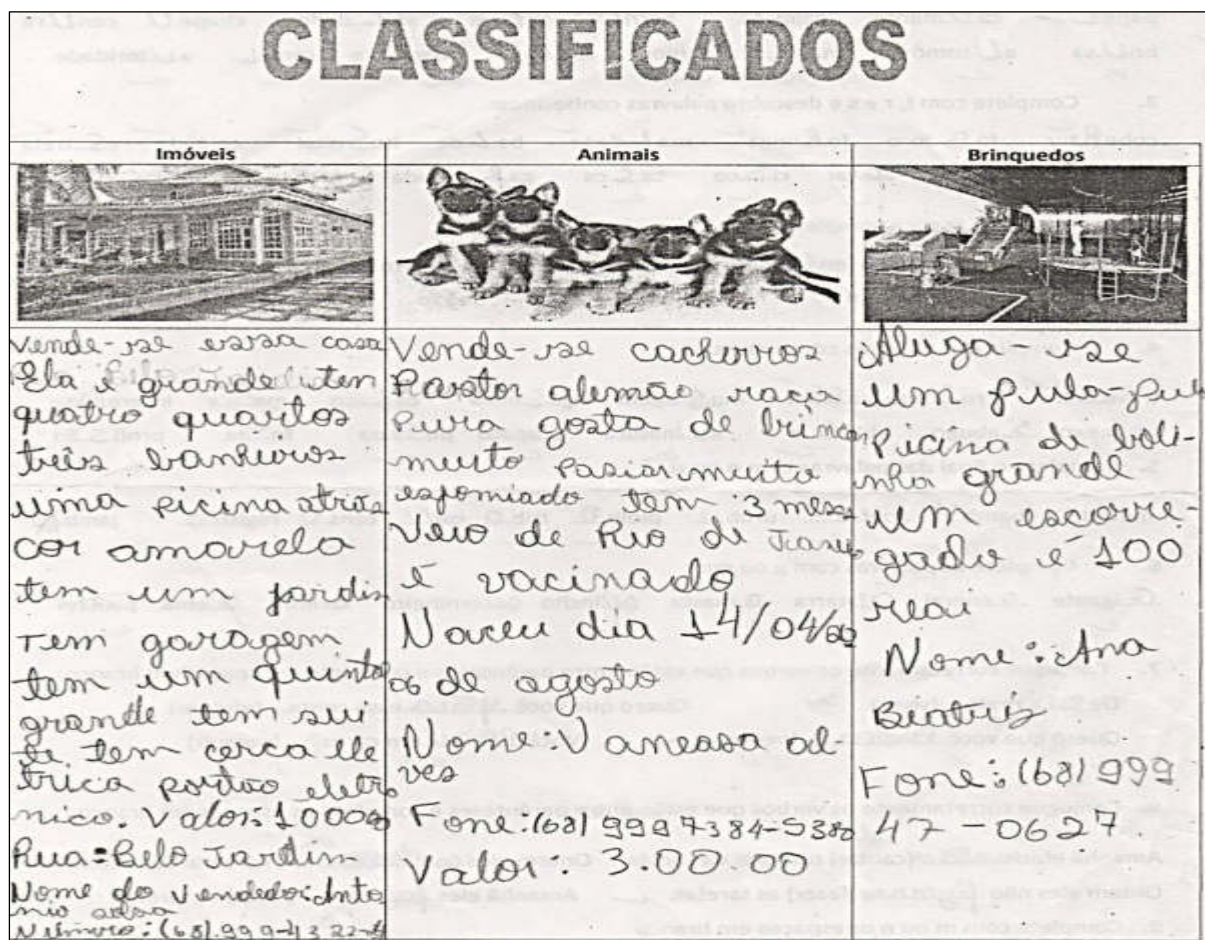 CLASSIFICADOS
Imóveis
Vende-se essa casa
Ela é grande tem
quatro quartos
três banheiros
uma picina atrás
cor amarela
tem um jardin
Tem garagem
tem um quintal
grande tem sui
te tem cerca lle
trica portão eletro
nico. Valor:
Rua=Belo Jardim
Nome do Vendedor: Anto
nio
Número: (68).999-4322-
Animais
Vende-se cachorros
Pastor alemão raça
Pura gosta de brincar
muito Pasiar muito
esfomiado tem 3 meses
Veio de Rio de Janeiro
é vacinado
Naceu dia 14/04/
de agosto
Nome: Vanessa al-
ves
Fone: (68) 9997384-
Valor: 3.00.00
Brinquedos
Aluga-se
um pula-pula
Picina di boli-
nha grande
um escorre-
gado é 100
reai
Nome: Ana
Beatriz
Fone: (68) 999
47-0627